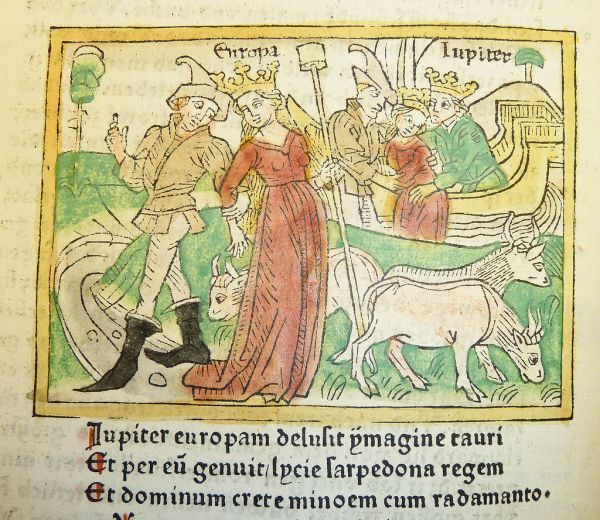 Europa
Iupiter
Iupiter europam delusit ẏmagine tauri
Et per eū genuit/lycie sarpedona regem
Et dominum crete minoem cum radamanto.